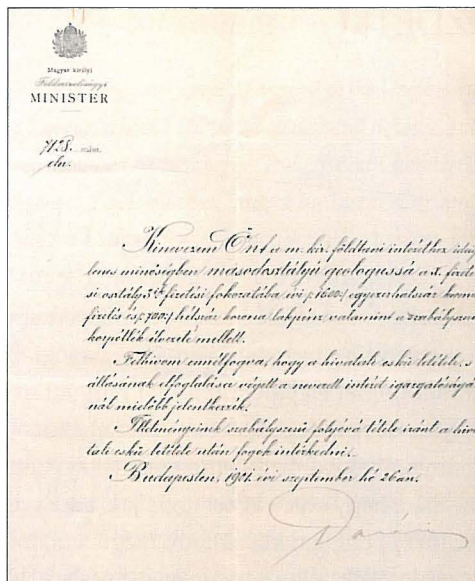 Magyar királyi
Földmívelésügyi
MINISTER
7128. szám.
eln.
Kinevezem Önt a m. kir. földtani intézethez ideig
lenes minőségben másodosztályú geologussá a X. fizeté
si osztály 3ik fizetési fokozatába évi /:1600:/ egyezerhatszáz korona
fizetés és /:700:/ hétszáz korona lakpénz valamint a szabályszerű
korpótlék élvezete mellett.
Felhivom ennélfogva, hogy a hivatali eskü letétele, s
állásának elfoglalása végett a nevezett intézet igazgatóságá
nál mielőbb jelentkezzék.
Illetményeinek szabályszerű folyóvá tétele iránt a hiva
tali eskü letétele után fogok intézkedni.
Budapesten, 1901. évi szeptember hó 26 án.